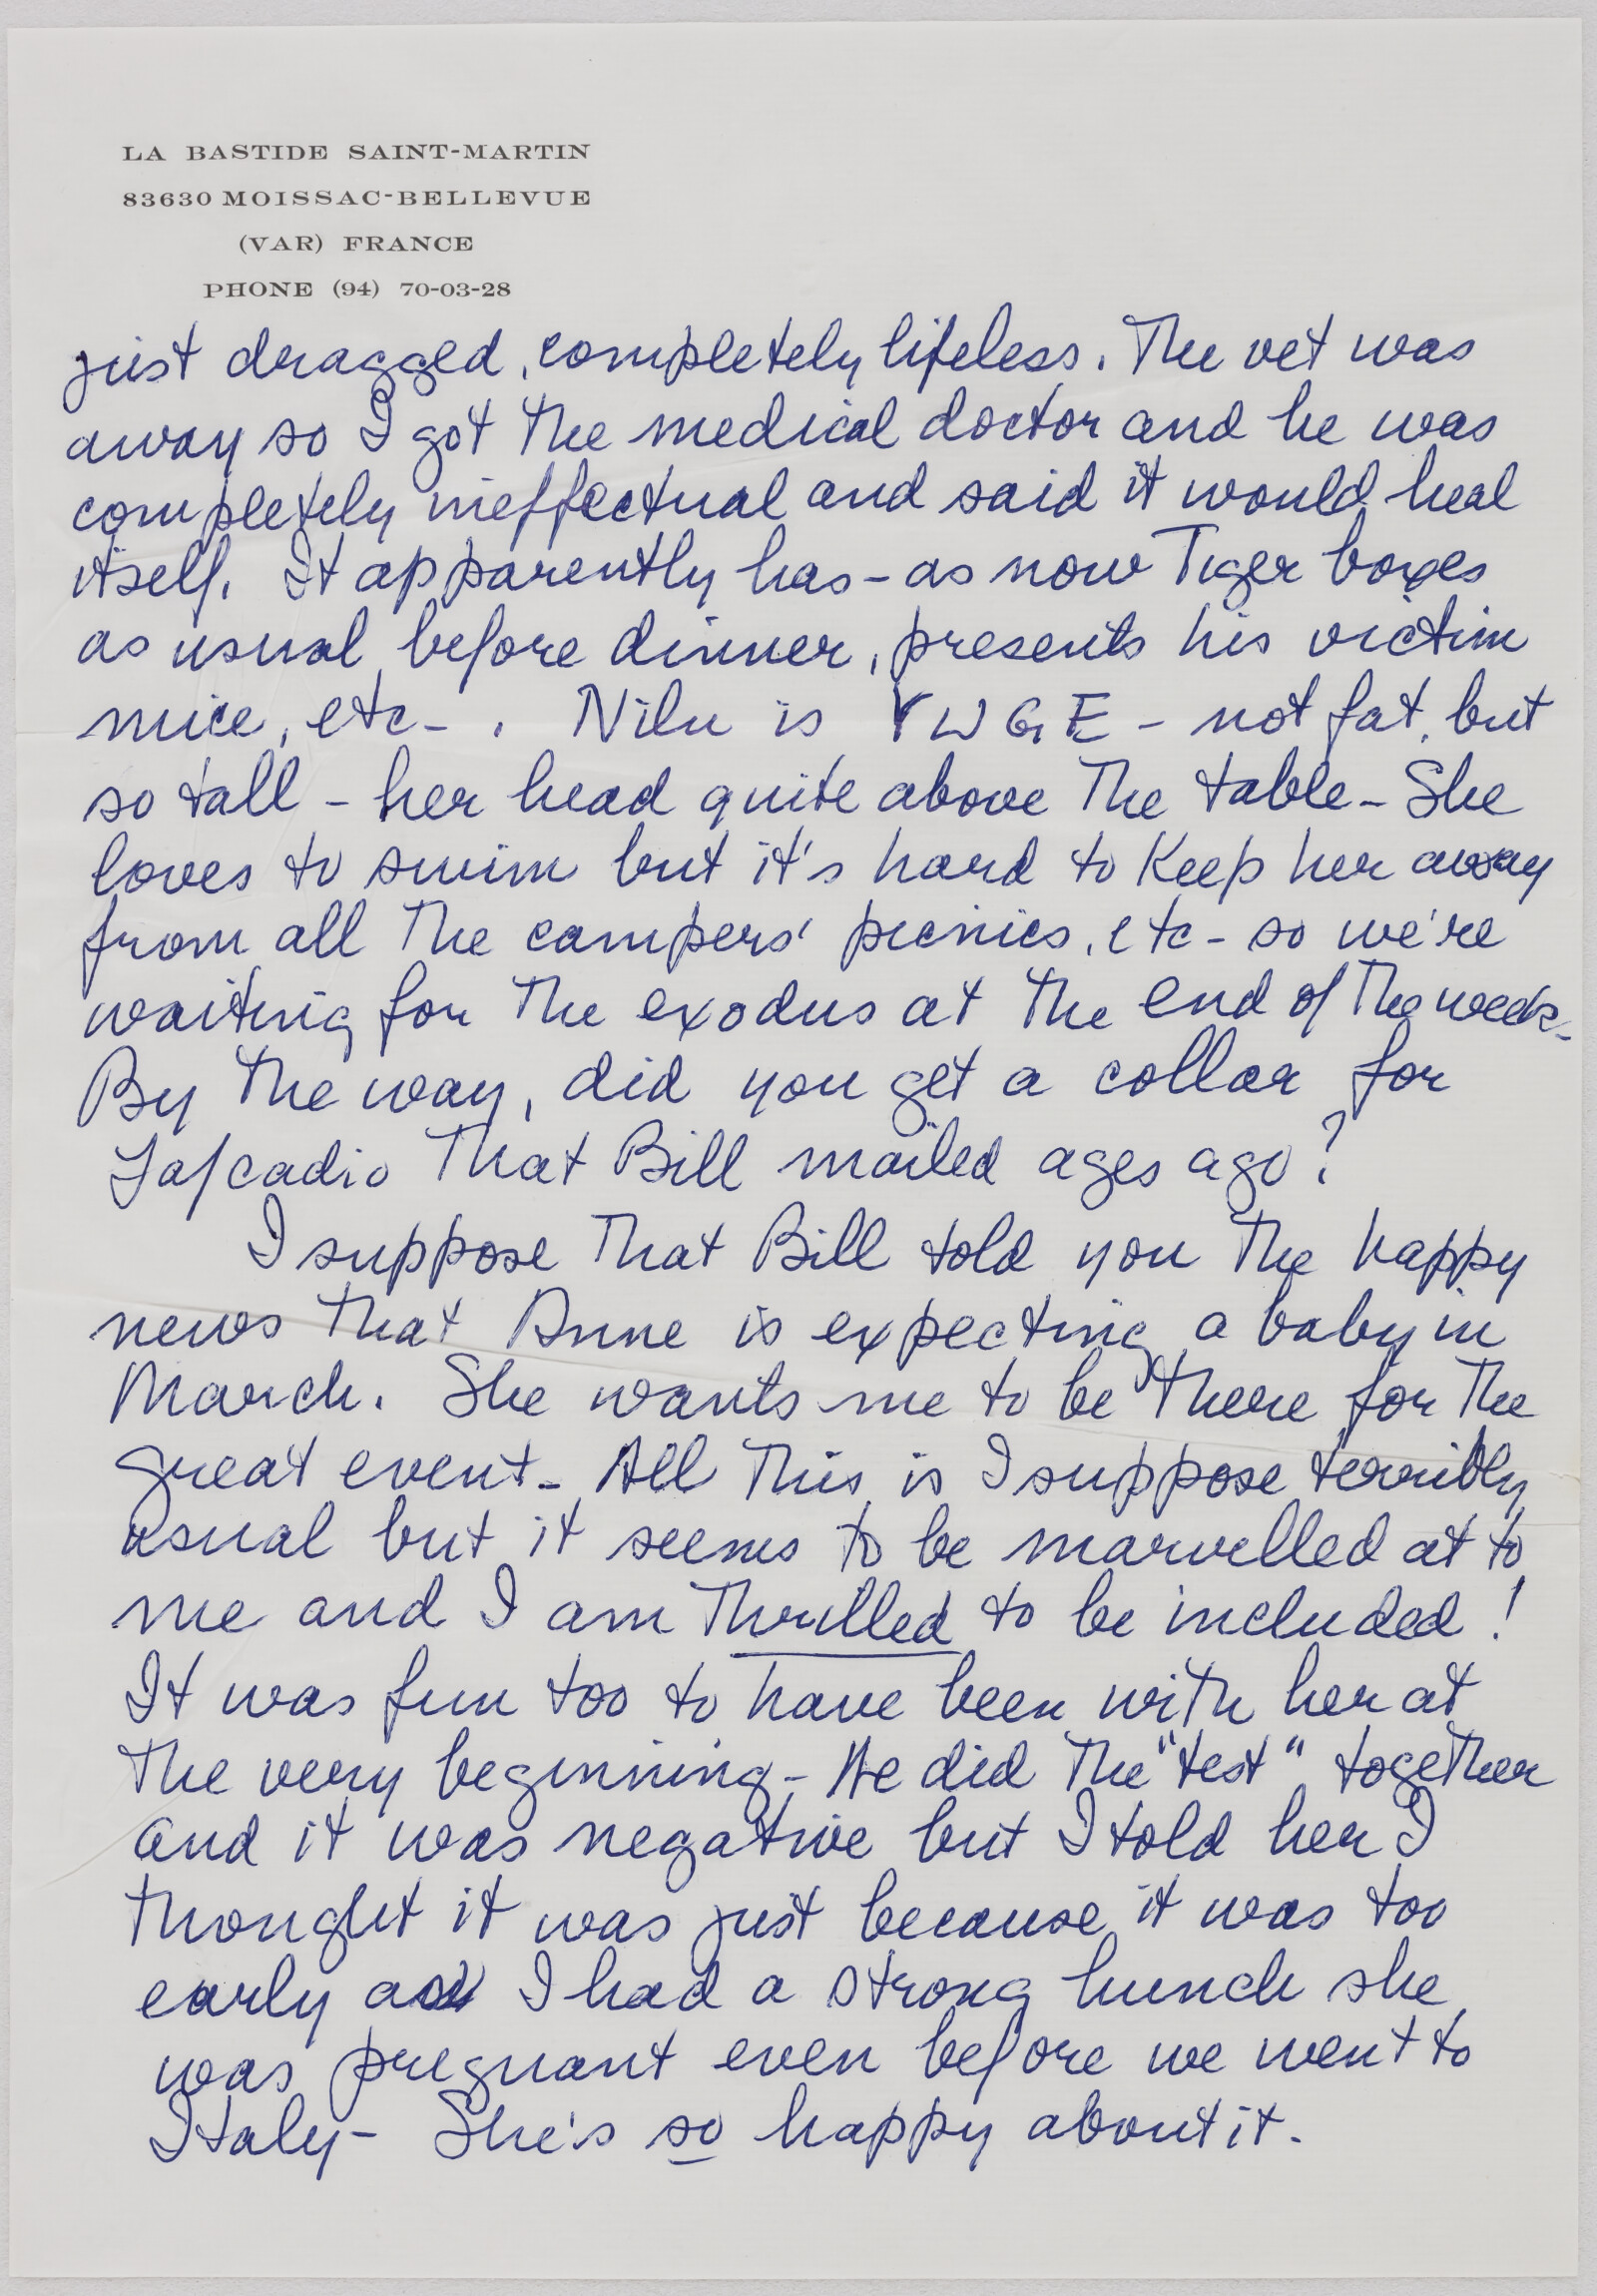 LA BASTIDE SAINT-MARTIN
83630 MOISSAC-BELLEVUE
(VAR) FRANCE
PHONE (94) 70-03-28
just dragged, completely lifeless. The vet was
away so I got the medical doctor and he was
completely ineffectual and said it would heal
itself. It apparently has - as now Tiger boxes
as usual before dinner, presents his victim
mice, etc - . Nilu is - not fat, but
so tall - her head quite above the table - She
loves to swim but it's hard to keep her away
from all the campers' picnics, etc - so we're
waiting for the exodus at the end of the week -
By the way, did you get a collar for
Lafcadio that Bill mailed ages ago?
I suppose that Bill told you the happy
news that Anne is expecting a baby in
March. She wants me to be there for the
great event - All this is I suppose terribly
usual but it seems to be marvelled at to
me and I am thrilled to be included!
It was fun too to have been with her at
the very beginning - We did the "test" together
and it was negative but I told her I
thought it was just because it was too
early and I had a strong hunch she
was pregnant even before we went to
Italy - She's so happy about it -